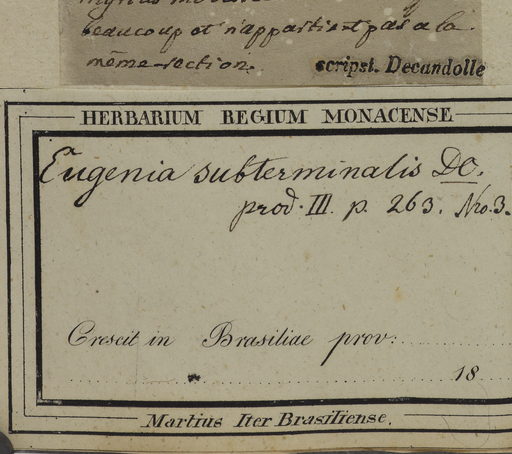 beaucoup et n'appartient pas a la
même section.
scripst. Decandolle
HERBARIUM REGIUM MONACENSE
Eugenia subterminalis DC.
prod. III. p. 263. Nro. 3.
Crescit in Brasiliae prov:
18
Martius Iter Brasiliense.